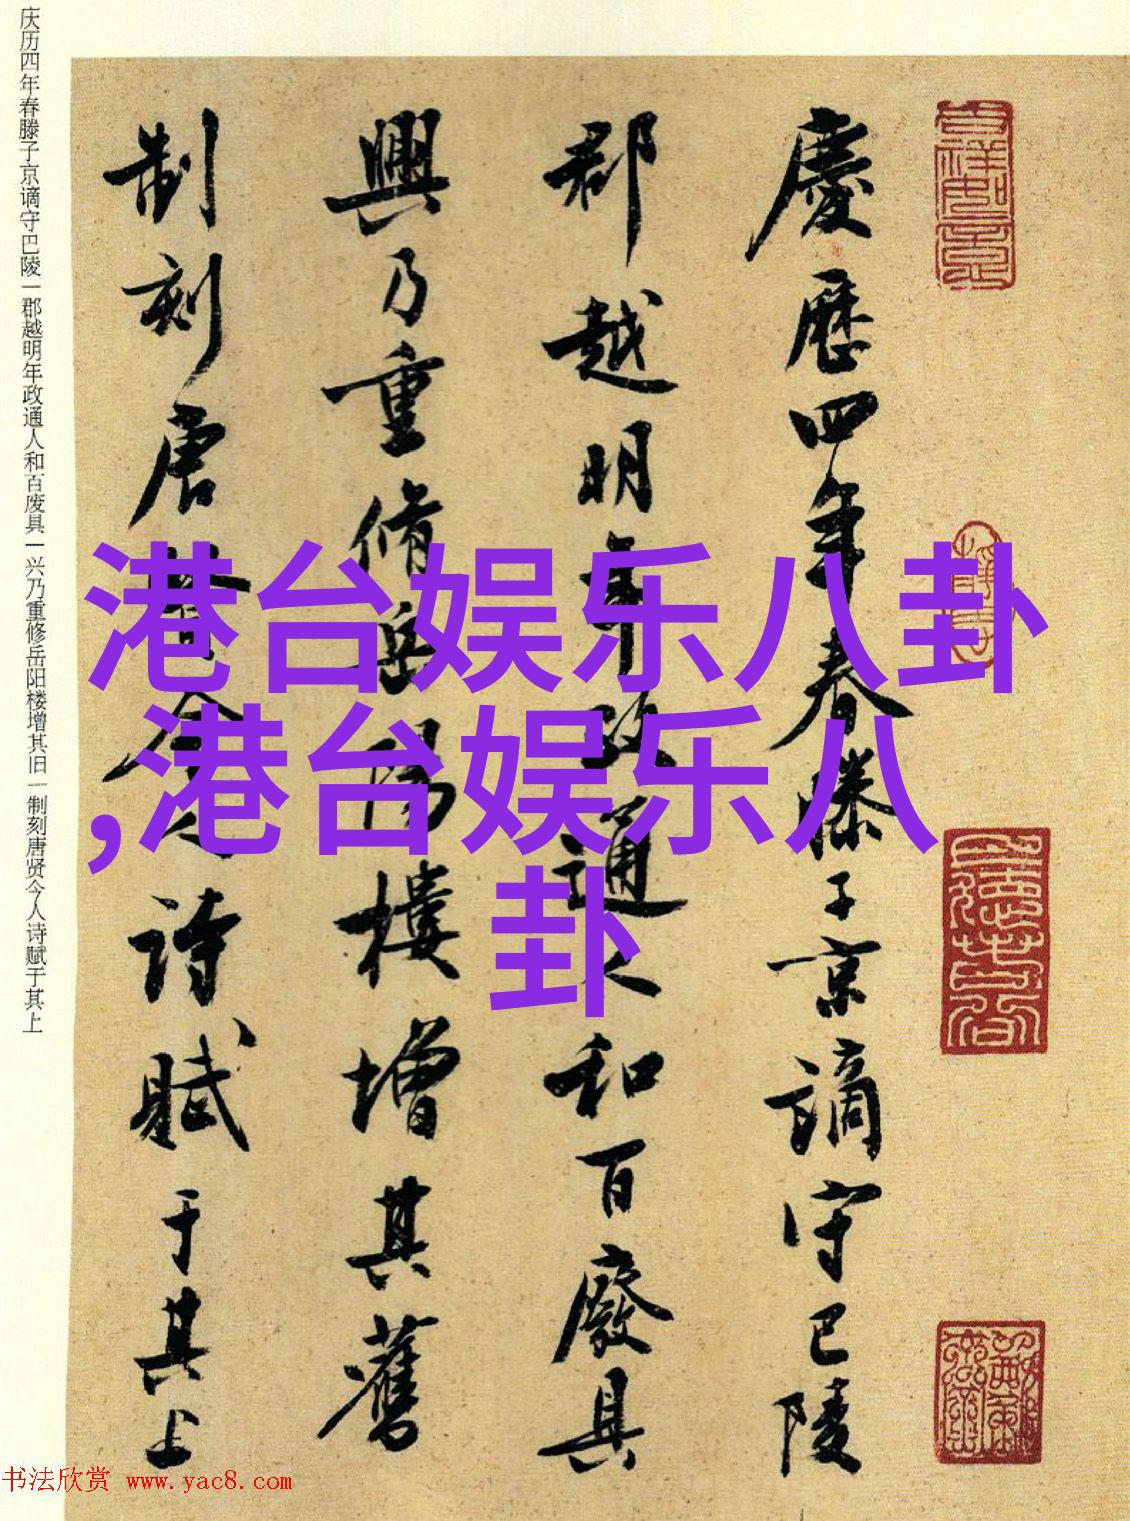 慶歷四年春滕子京謫守巴陵
郡越明年政通人和百廢具
興乃重脩岳陽樓增其舊
制刻唐賢今人詩賦于其上
庆历四年春滕子京谪守巴陵一郡越明年政通人和百废具一兴乃重修岳阳楼增其旧一制刻唐贤今人诗赋于其上
港台娱乐八卦
,港台娱乐八
卦
书法欣赏 www.yac8.com